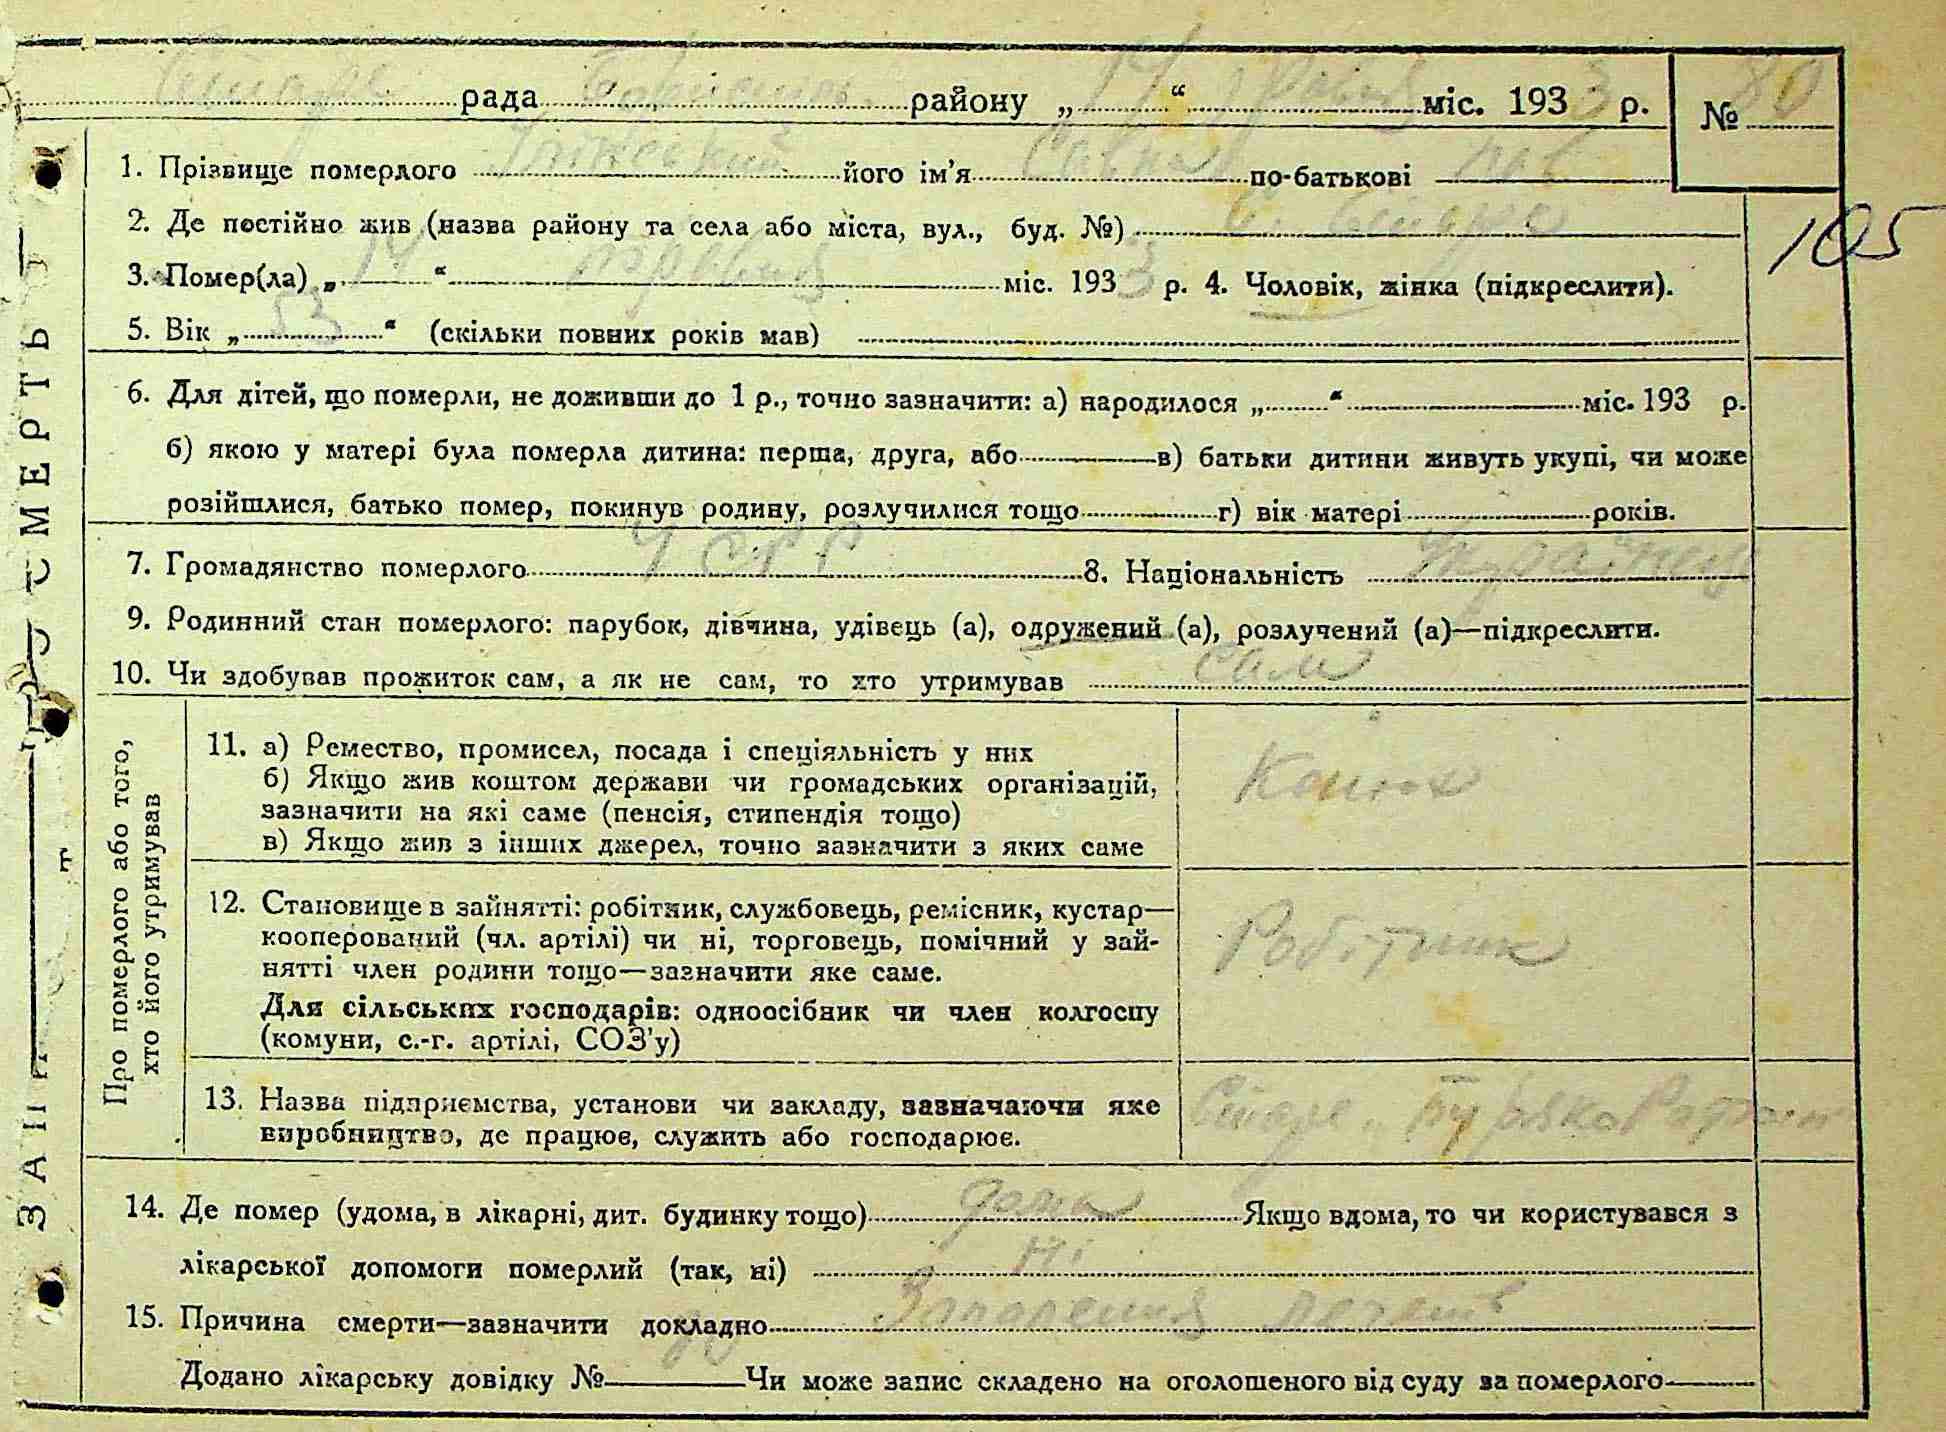 Старе рада Бориспіль району „ 14 “ травня міс. 1933 р. № 80
1. Прізвище померлого його ім'я Сава по-батькові
2. Де постійно жив (назва району та села або міста, вул., буд. №) с. Старе
105
3. Помер(ла) „ 14 “ травня міс. 1933 р. 4. Чоловік, жінка (підкреслити).
5. Вік „ 53 “ (скільки повних років мав)
6. Для дітей, що померли, не доживши до 1 р., точно зазначити: а) народилося „ “ міс. 193 р.
б) якою у матері була померла дитина: перша, друга, або в) батьки дитини живуть укупі, чи може
розійшлися, батько помер, покинув родину, розлучилися тощо г) вік матері років.
7. Громадянство померлого УСРР 8. Національність Українец
9. Родинний стан померлого: парубок, дівчина, удівець (а), одружений (а), розлучений (а)—підкреслити.
10. Чи здобував прожиток сам, а як не сам, то хто утримував сам
Про померлого або того,
хто його утримував
11. а) Ремество, промисел, посада і спеціяльність у них
б) Якщо жив коштом держави чи громадських організацій,
зазначити на які саме (пенсія, стипендія тощо)
в) Якщо жив з інших джерел, точно зазначити з яких саме
Конюх
12. Становище в зайнятті: робітник, службовець, ремісник, кустар—
кооперований (чл. артілі) чи ні, торговець, помічний у зай-
нятті член родини тощо—зазначити яке саме.
Для сільських господарів: одноосібник чи член колгоспу
(комуни, с.-г. артілі, СОЗ'у)
Робітник
13. Назва підприємства, установи чи закладу, зазначаючи яке
виробництво, де працює, служить або господарює.
Старе
14. Де помер (удома, в лікарні, дит. будинку тощо) дома Якщо вдома, то чи користувався з
лікарської допомоги померлий (так, ні) ні
15. Причина смерти—зазначити докладно
Додано лікарську довідку № Чи може запис складено на оголошеного від суду за померлого
СМЕРТЬ